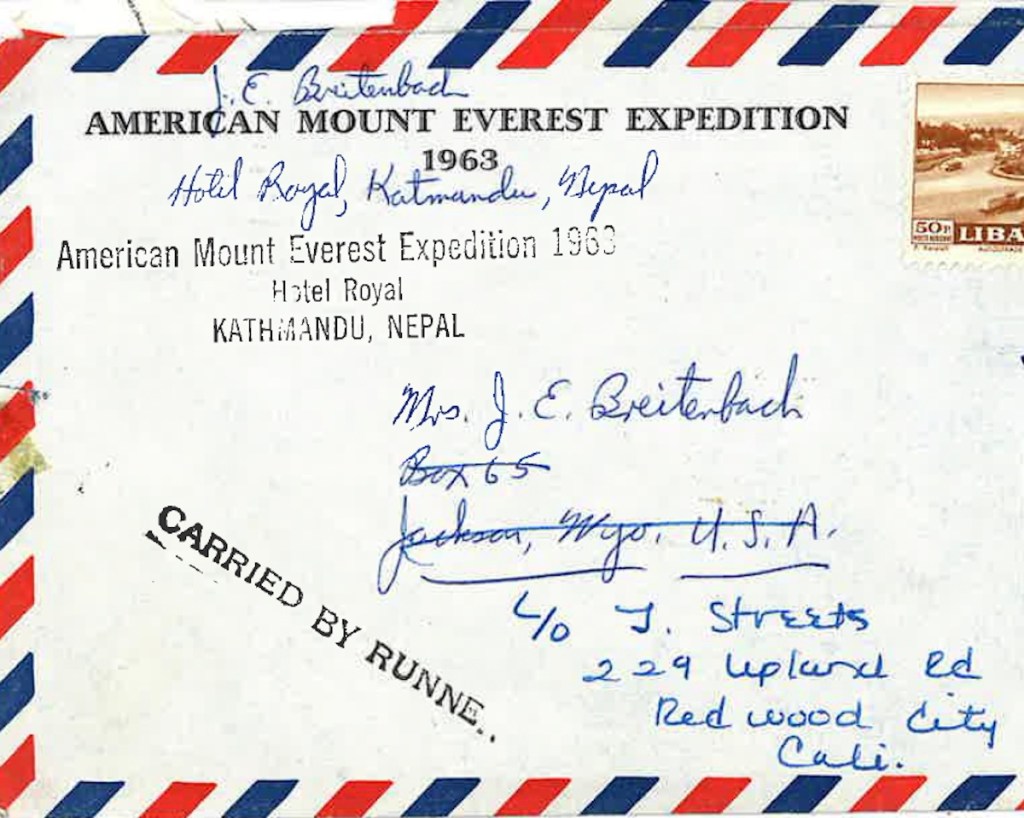 J. E. Breitenbach
AMERICAN MOUNT EVEREST EXPEDITION
1963
Hotel Royal, Katmandu, Nepal
American Mount Everest Expedition 1963
Hotel Royal
KATHMANDU, NEPAL
50P
LIBA
Mrs. J. E. Breitenbach
Box 65
Jackson, Wyo. U.S.A.
c/o J. Streets
229 Upland Rd
Redwood City
Cali.
CARRIED BY RUNNE..